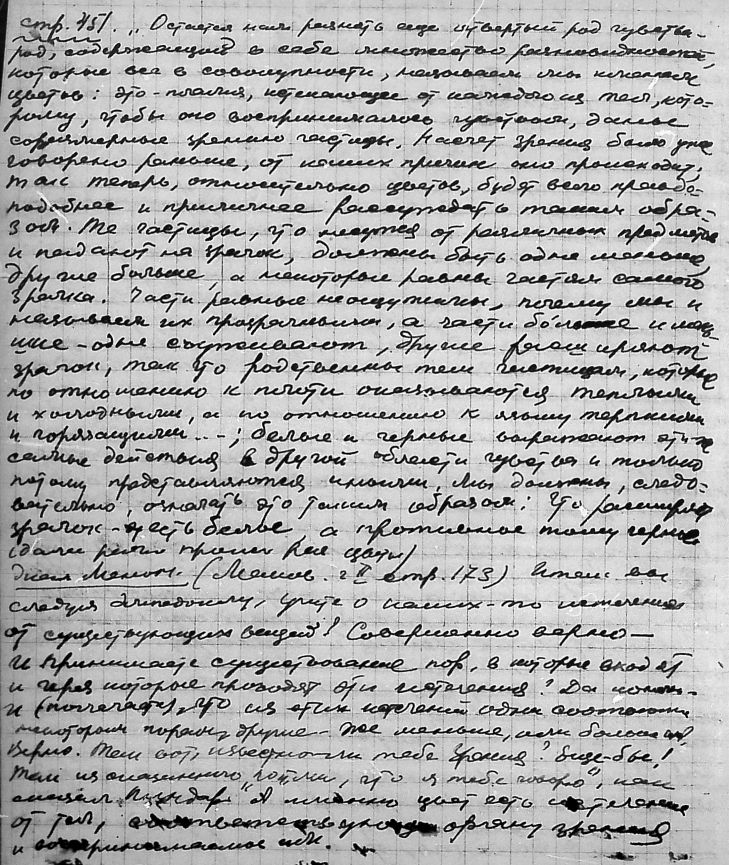 стр. 451. „Остается нам разнять еще четвертый род чувства-
род, содержащий в себе множество разновидностей,
которые все в совокупности, называем мы именем
цветов: это - пламя, истекающее от каждого из тел, кото-
рому, чтобы оно воспринималось чувством, даны
соразмерные зрению частицы. Насчет зрения было уже
говорено раньше, от каких причин оно происходит,
так теперь, относительно цветов, будет всего правдо-
подобнее и приличнее рассуждать таким обра-
зом. Те частицы, что несутся от различных предметов
и падают на зрачок, должны быть одне меньше,
другие больше, а некоторые равны частям самого
зрачка. Части равные неощутимы, почему мы и
называем их прозрачными, а части больше и мень-
шие - одне суживают, другие расширяют
зрачок, так что родственны тем частицам, которые
по отношению к плоти оказываются теплыми
и холодными, а по отношению к языку терпкими
и горячащими...; белые и черные выражают эти же
самые действия в другой области чувства и только
потому представляются иными. Мы должны, следо-
вательно, означать это таким образом: что расширяет
зрачок - есть белое, а противное тому черное
(дали речь про все цвета)
Диал. Менон. (Менон. г II стр. 173) Итак вы
следуя Эмпедоклу, учите о каких-то истечениях
от существующих вещей? Совершенно верно —
И принимаете существование пор, в которые входят
и через которые проходят эти истечения? Да конеч.-
И (полагаете), что из этих истечений одни соответ.
некоторым порам, другие - же меньше, или больше их?
Верно. Так вот, известно ли тебе зрение? Еще-бы!
Так из сказанного пойми, что я тебе говорю", как
сказал Пиндар. "А именно цвет есть истечение
от тел, соответствующее органу зрения
и воспринимаемое им.